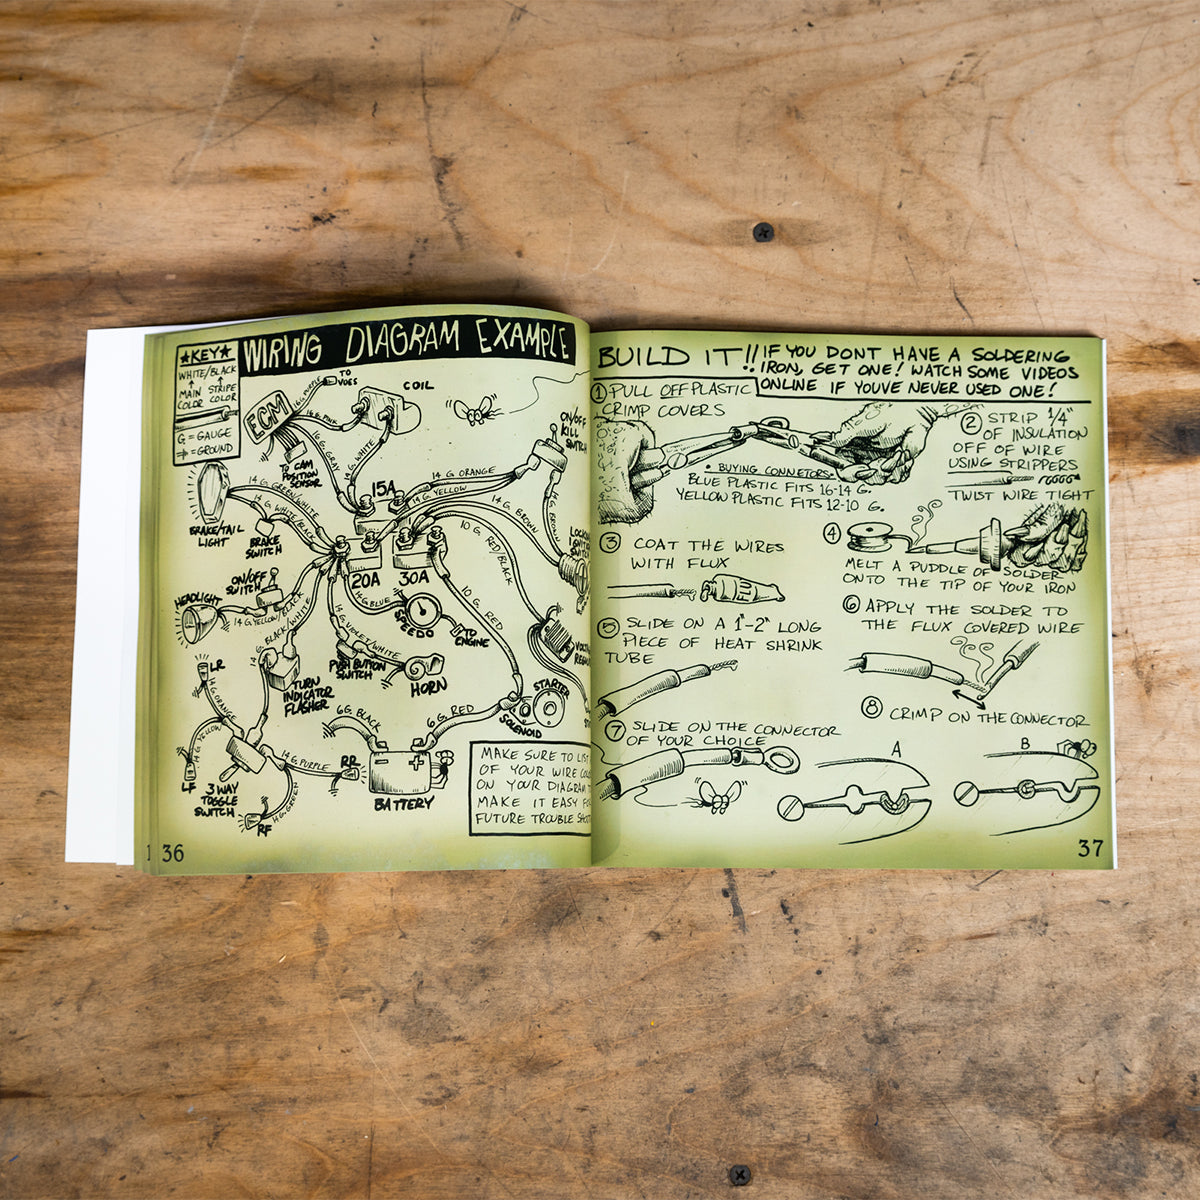 ★KEY★
WHITE/BLACK
MAIN COLOR
STRIPE COLOR
G = GAUGE
= GROUND
WIRING DIAGRAM EXAMPLE
ECM
16 G. PURPLE
TO VOES
16 G. PINK
COIL
16 G. GRAY
16 G. WHITE
TO CAM
POSITION
SENSOR
ON/OFF
KILL
SWITCH
15A
14 G. ORANGE
14 G. YELLOW
14 G. BROWN
14 G. BROWN
14 G. GREEN/WHITE
14 G. WHITE/BLACK
BRAKE/TAIL
LIGHT
BRAKE
SWITCH
10 G. RED/BLACK
20A
30A
ON/OFF
SWITCH
HEADLIGHT
14 G. YELLOW/BLACK
14 G. BLUE
SPEEDO
TO
ENGINE
10 G. RED
14 G. BLACK/WHITE
14 G. VIOLET/WHITE
PUSH BUTTON
SWITCH
HORN
TURN
INDICATOR
FLASHER
LR
14 G. ORANGE
14 G. YELLOW
LF
3 WAY
TOGGLE
SWITCH
14 G. PURPLE
RR
14 G. GREEN
RF
6 G. BLACK
6 G. RED
BATTERY
SOLENOID
STARTER
MAKE SURE TO LIST
OF YOUR WIRE
ON YOUR DIAGRAM
MAKE IT EASY
FUTURE TROUBLE
36
BUILD IT!!
IF YOU DONT HAVE A SOLDERING
IRON, GET ONE! WATCH SOME VIDEOS
ONLINE IF YOUVE NEVER USED ONE!
1 PULL OFF PLASTIC
CRIMP COVERS
• BUYING CONNETORS
BLUE PLASTIC FITS 16-14 G.
YELLOW PLASTIC FITS 12-10 G.
2 STRIP 1/4"
OF INSULATION
OFF OF WIRE
USING STRIPPERS
TWIST WIRE TIGHT
3 COAT THE WIRES
WITH FLUX
FLUX
4
MELT A PUDDLE OF SOLDER
ONTO THE TIP OF YOUR IRON
5 SLIDE ON A 1"-2" LONG
PIECE OF HEAT SHRINK
TUBE
6 APPLY THE SOLDER TO
THE FLUX COVERED WIRE
7 SLIDE ON THE CONNECTOR
OF YOUR CHOICE
8 CRIMP ON THE CONNECTOR
A
B
37